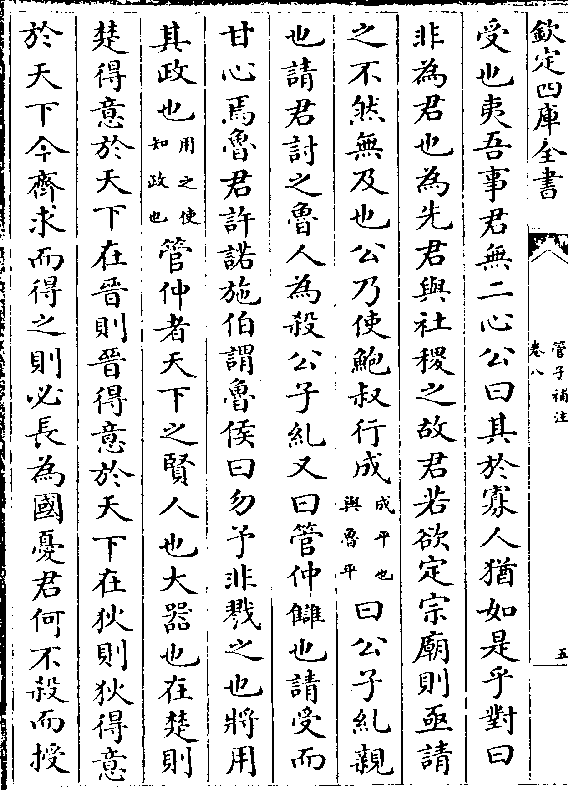 欽定四庫全書
管子補注
卷八
五
受也夷吾事君無二心公曰其於寡人猶如是乎對曰
非為君也為先君與社稷之故君若欲定宗廟則亟請
之不然無及也公乃使鮑叔行成成平也與魯平曰公子糺親
也請君討之魯人為殺公子糺又曰管仲讎也請受而
甘心焉魯君許諾施伯謂魯侯曰勿予非戮之也將用
其政也用之使知政也管仲者天下之賢人也大器也在楚則
楚得意於天下在晉則晉得意於天下在狄則狄得意
於天下今齊求而得之則必長為國憂君何不殺而授